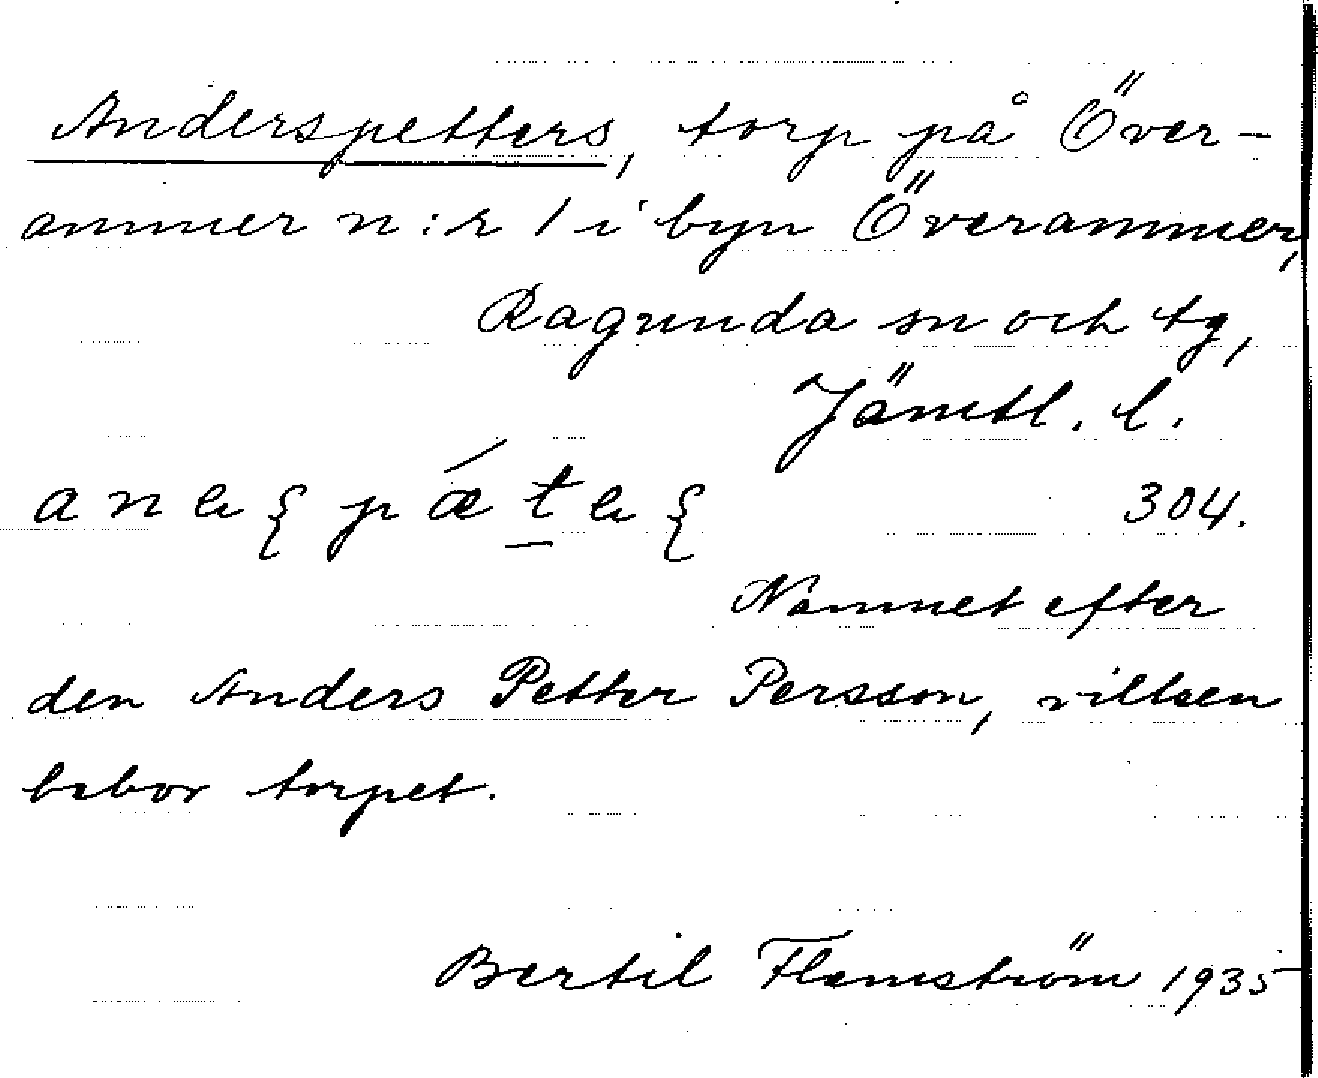 Anderspetters, torp på Över-
ammer n:r 1 i byn Överammer,
Ragunda sn och tg,
Jämtl. l.
304.
Namnet efter
den Anders Petter Persson, vilken
bebor torpet.
Bertil Flemström 1935